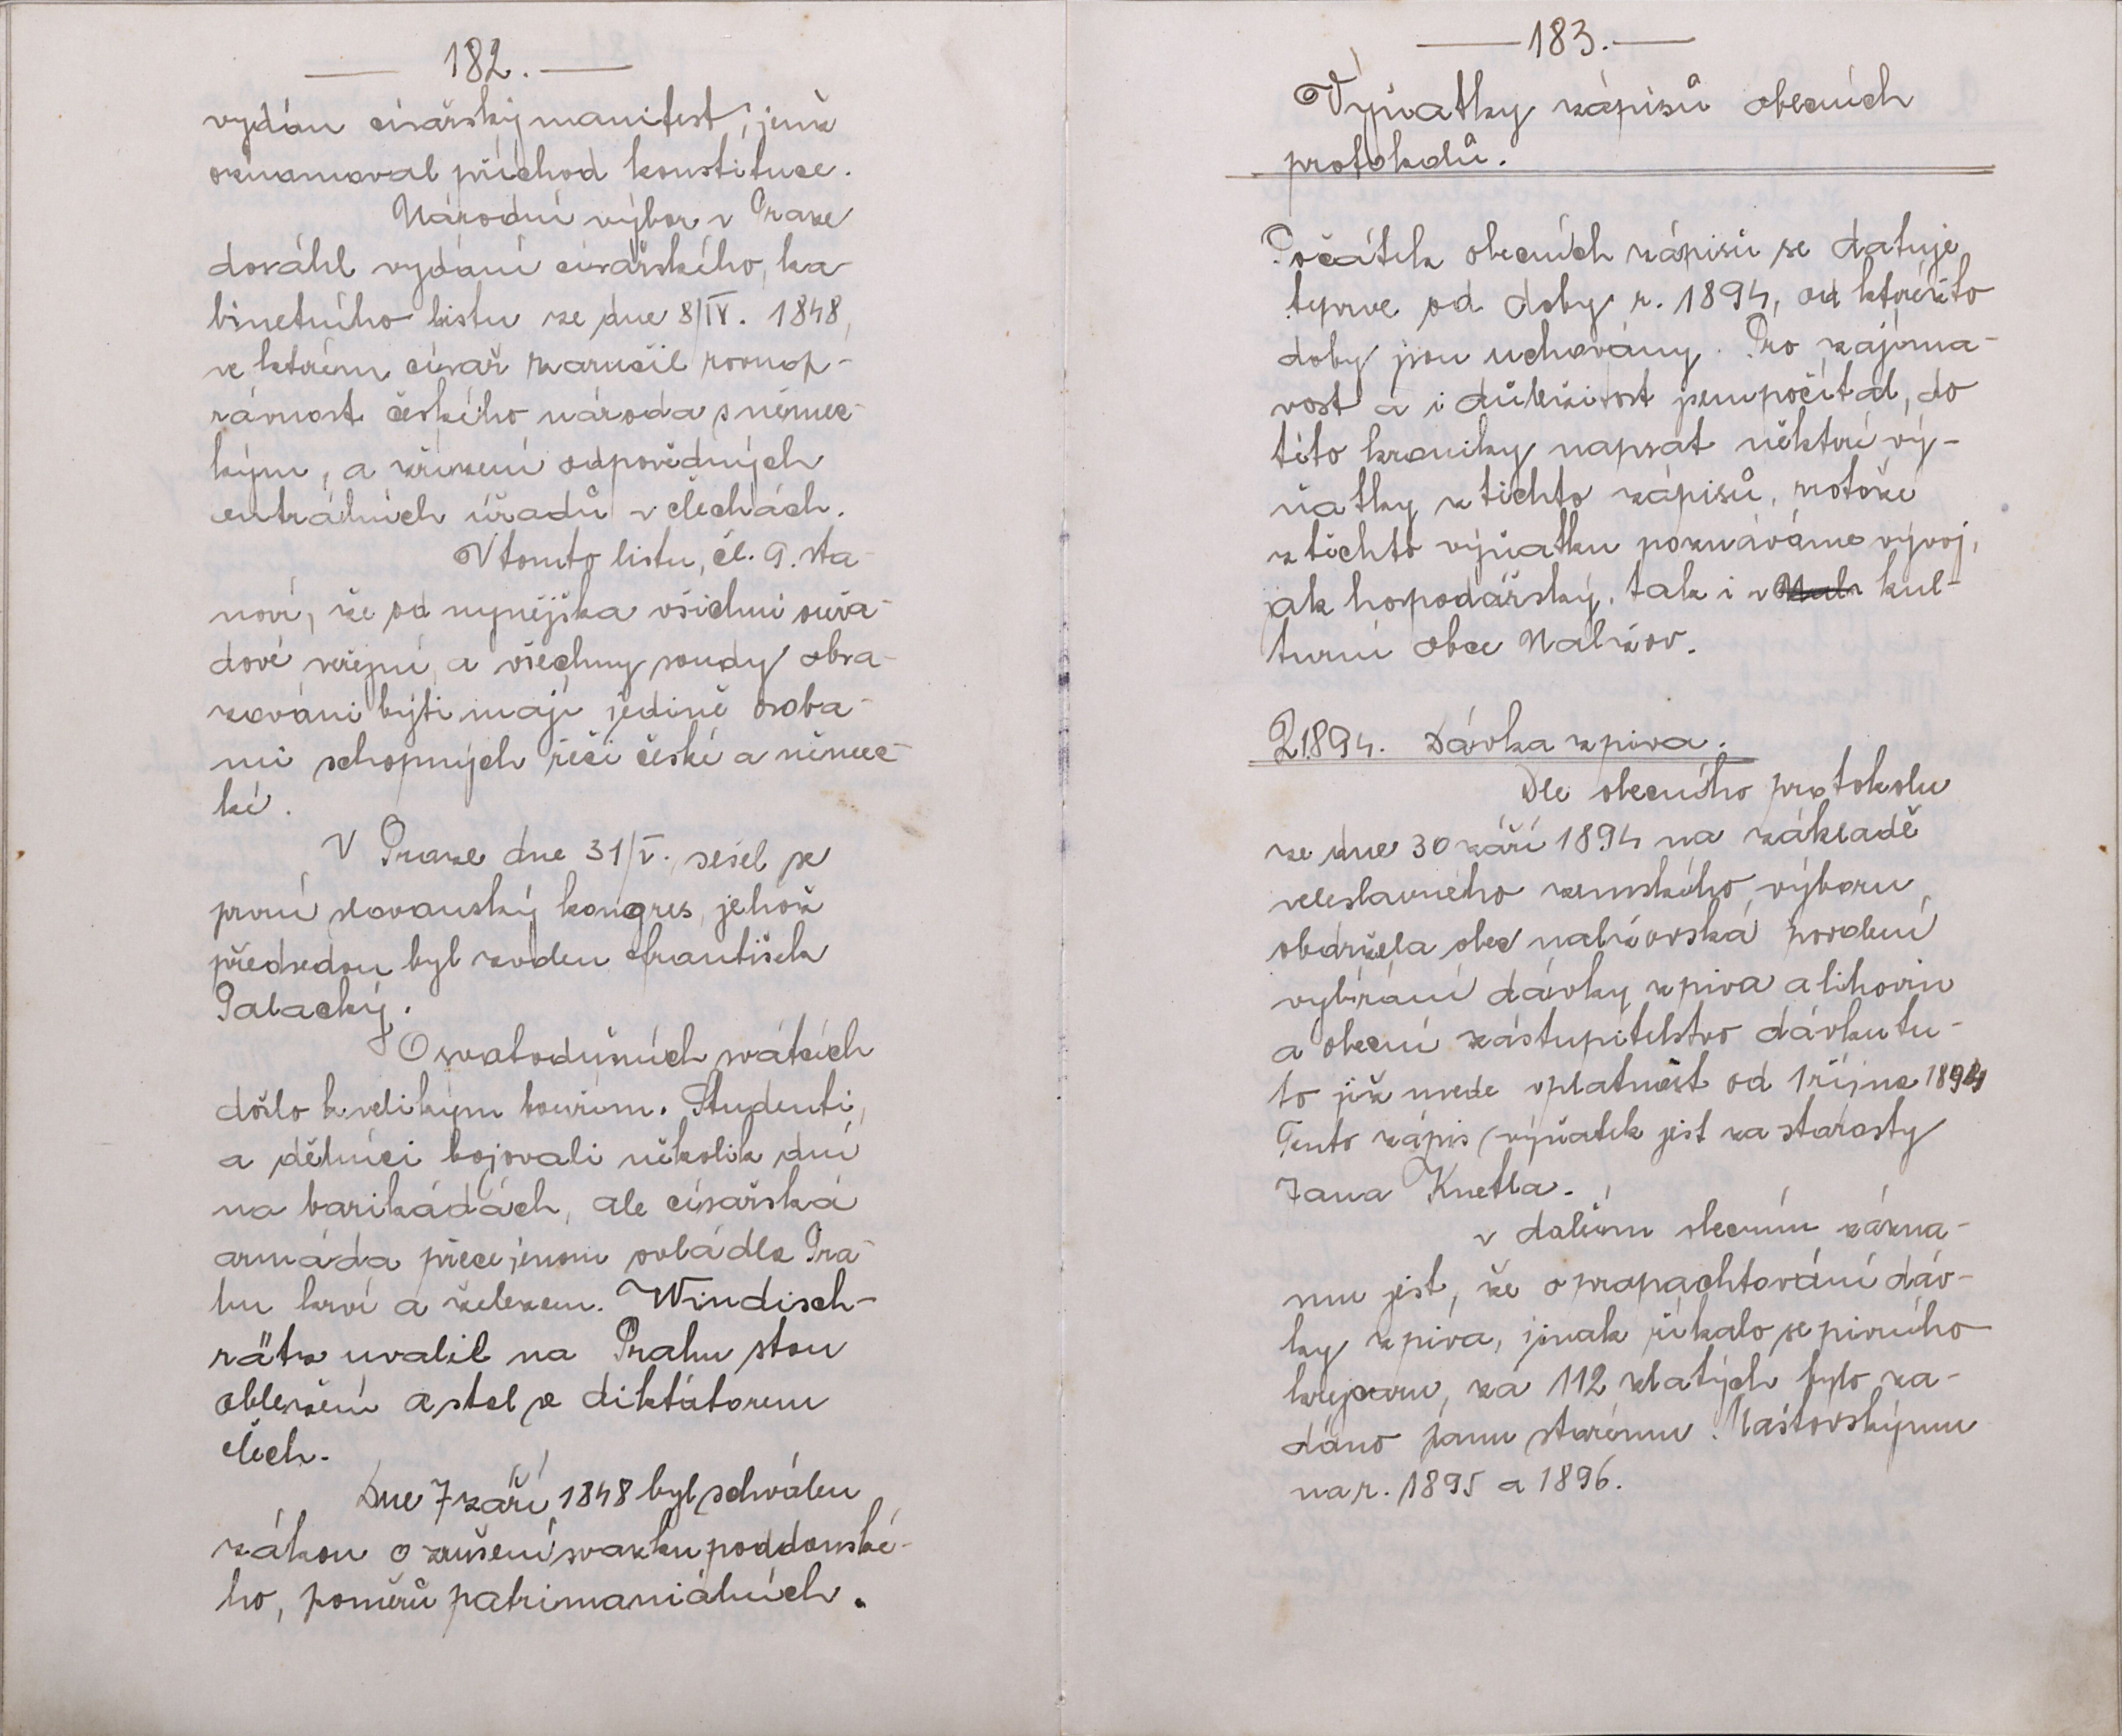 182.
vydán císařský manifest, jenž
oznamoval příchod konstituce.
Národní výbor v Praze
dosáhl vydání císařského, ka-
binetního listu ze dne 8/IV. 1848,
ve kterém císař zaručil rovnop-
rávnost českého národa s němec-
kým, a zřízení odpovědných
centrálních úřadů v Čechách.
V tomto listu, čl. 9. sta-
noví, že od nynějška všichni ouřa-
dové veřejní, a všechny soudy obsa-
zováni býti mají jedině osoba-
mi schopných řeči české a němec-
ké.
V Praze dne 31/V. sešel se
první slovanský kongres, jehož
předsedou byl zvolen František
Palacký.
O svatodušních svátcích
došlo k velikým bouřím. Studenti,
a dělníci bojovali několik dní
na barikádách, ale císařská
armáda přece jenom ovládla Pra-
hu krví a železem. Windisch-
rätz uvalil na Prahu stav
obležení a stal se diktátorem
Čech.
Dne 7 září 1848 byl schválen
zákon o zrušení svazku poddanské-
ho, poměrů patrimaniálních.
183.
Výňatky zápisů obecních
protokolů.
Počátek obecních zápisů se datuje
teprve od doby r. 1894, od kteréžto
doby jsou uchovány. Pro zajíma-
vost a i důležitost jsem počítal, do
této kroniky napsat některé vý-
ňatky z těchto zápisů, protože
z těchto výňatku poznáváme vývoj,
jak hospodářský, tak i v kul-
turní obce Nalžov.
R 1894. Dávka z piva.
Dle obecního protokolu
ze dne 30 září 1894 na základě
veleslavného zemského, výboru
obdržela obec nalžovská povolení
vybírání dávky z piva a lihovin
a obecní zástupitelstvo dávku tu-
to již uvede v platnost od 1 října 1894
Tento zápis, výňatek jest za starosty
Jana Knetla.
v dalším obecním zázna-
mu jest, že o propachtování dáv-
ky z piva, jinak říkalo se pivního
krejcaru, za 112 zlatých bylo za-
dáno panu starému Nastovskýmu
na r. 1895 a 1896.